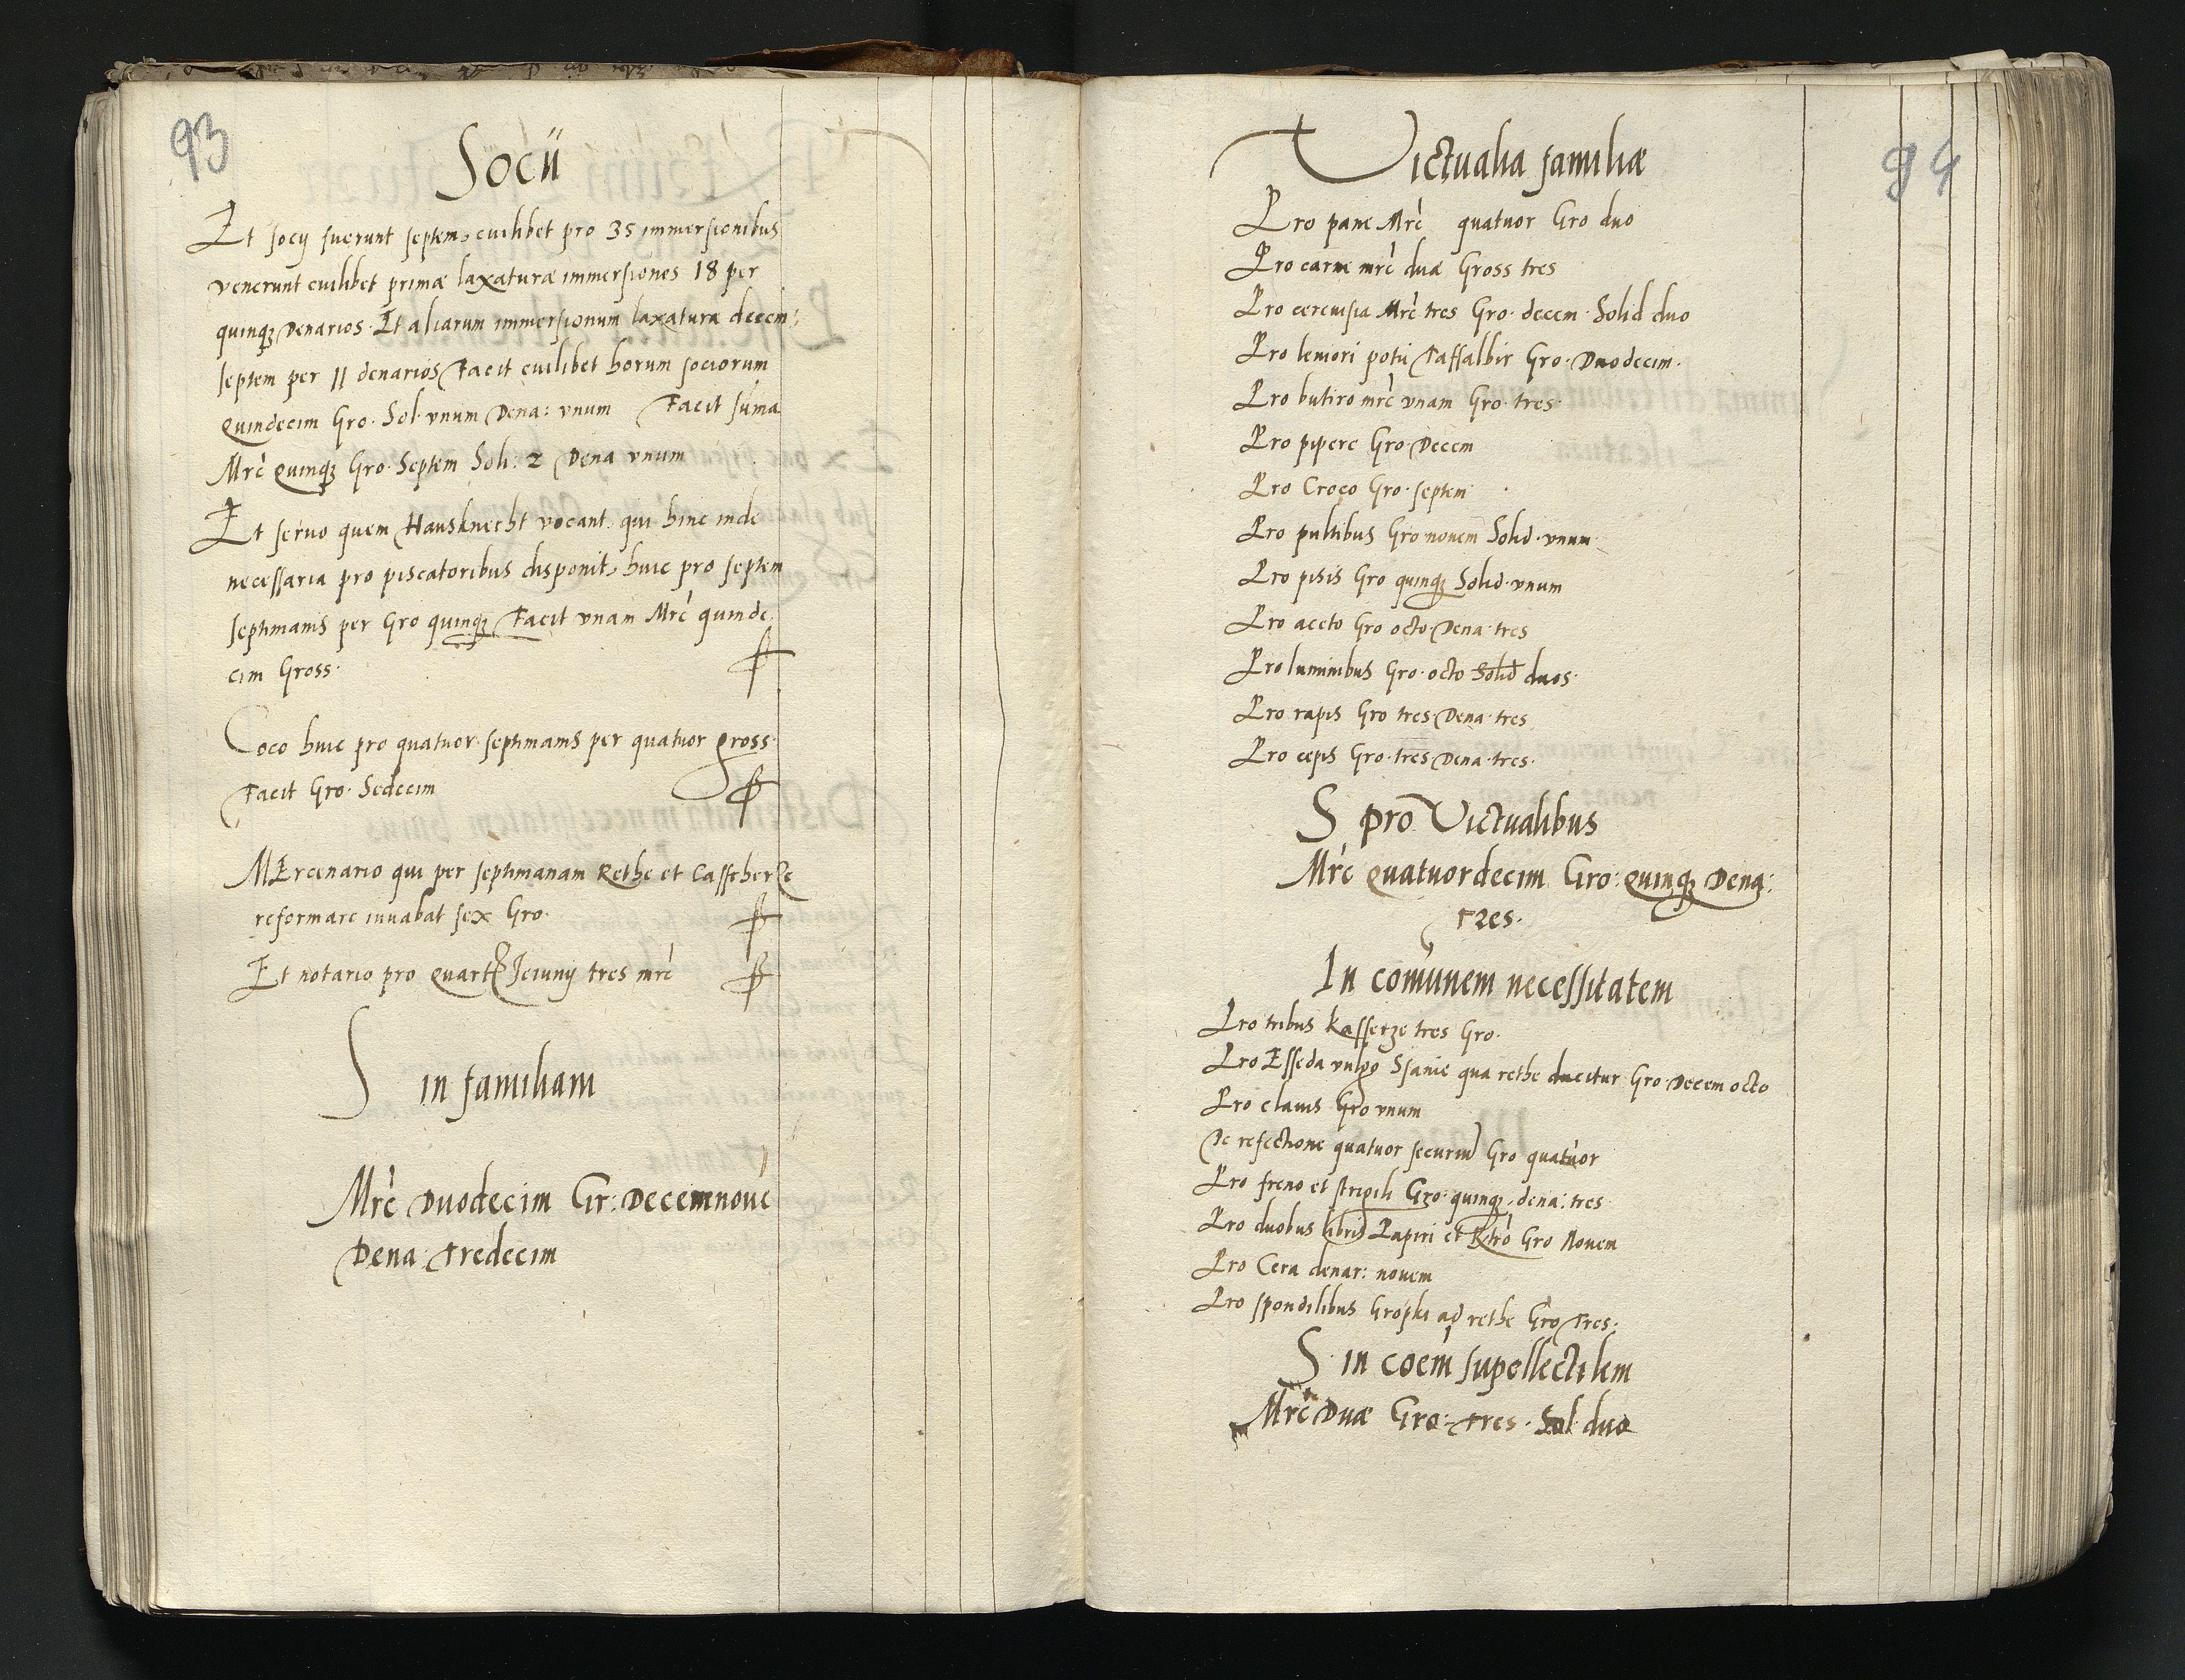 93
Socii
Et socij fuerunt septem, cuilibet pro 35 immersionibus
venerunt cuilibet primæ laxaturæ immersiones 18 per
quinqȝ Denarios. Et aliarum immersionum laxatura decem:
septem per 11 denarios Facit cuilibet horum sociorum
Quindecim Gro. Sol. vnum Dena: vnum Facit suma
Mrc̀ Quinqȝ Gro. Septem Soli: 2 Dena vnum
Et seruo quem Hausknecht vocant, qui hinc inde
necessaria pro piscatoribus disponit, huic pro septem
septimanis per Gro quinqȝ Facit vnam Mrc̀ quinde
cim Gross.
Coco huic pro quatuor septimanis per quatuor gross
Facit Gro. Sedecim
MErcenario qui per septimanam Rethe et Casscherze
reformare iuuabat sex Gro.
Et notario pro Quart Jeiunij tres mrc̀
S in familiam
Mrc̀ Duodecim Gr: Decemnouē
Dena: Tredecim
94
Victualia familiæ
Pro pane Mrc̀ quatuor Gro duo
Pro carne mrc̀ duæ Gross tres
Pro cereuisia Mrc̀ tres Gro. decem. Solid duo
Pro leniori potu Taffalbir Gro. Duodecim.
Pro butiro mrc̀ vnam Gro. tres.
Pro pipere Gro. Decem
Pro Croco Gro. septem
Pro pultibus Gro nouem Solid. vnum
Pro pisis Gro quinqȝ Solid. vnum
Pro aceto Gro octo. Dena. tres
Pro luminibus Gro. octo Solid duos.
Pro rapis Gro tres. Dena. tres
Pro cepis Gro. tres Dena. tres.
S pro Victualibus
Mrc̀ Quatuordecim Gro: Quinqȝ Dena:
Tres.
In comunem necessitatem
Pro tribus kasserze tres Gro.
Pro Esseda vulgo Ssanie qua rethe ducitur Gro. Decem octo
Pro clauis Gro vnum
De refectione quatuor securiū Gro quatuor
Pro freno et strigili Gro. quinqȝ. dena: tres
Pro duobus libris Papiri et Gro Nouem
Pro Cera denar: nouem
Pro spondilibus Gropki ad rethe Gro Tres.
S. in coem̄ supellectilem
Mrc̀ Duæ Gro: Tres. Sol. duo